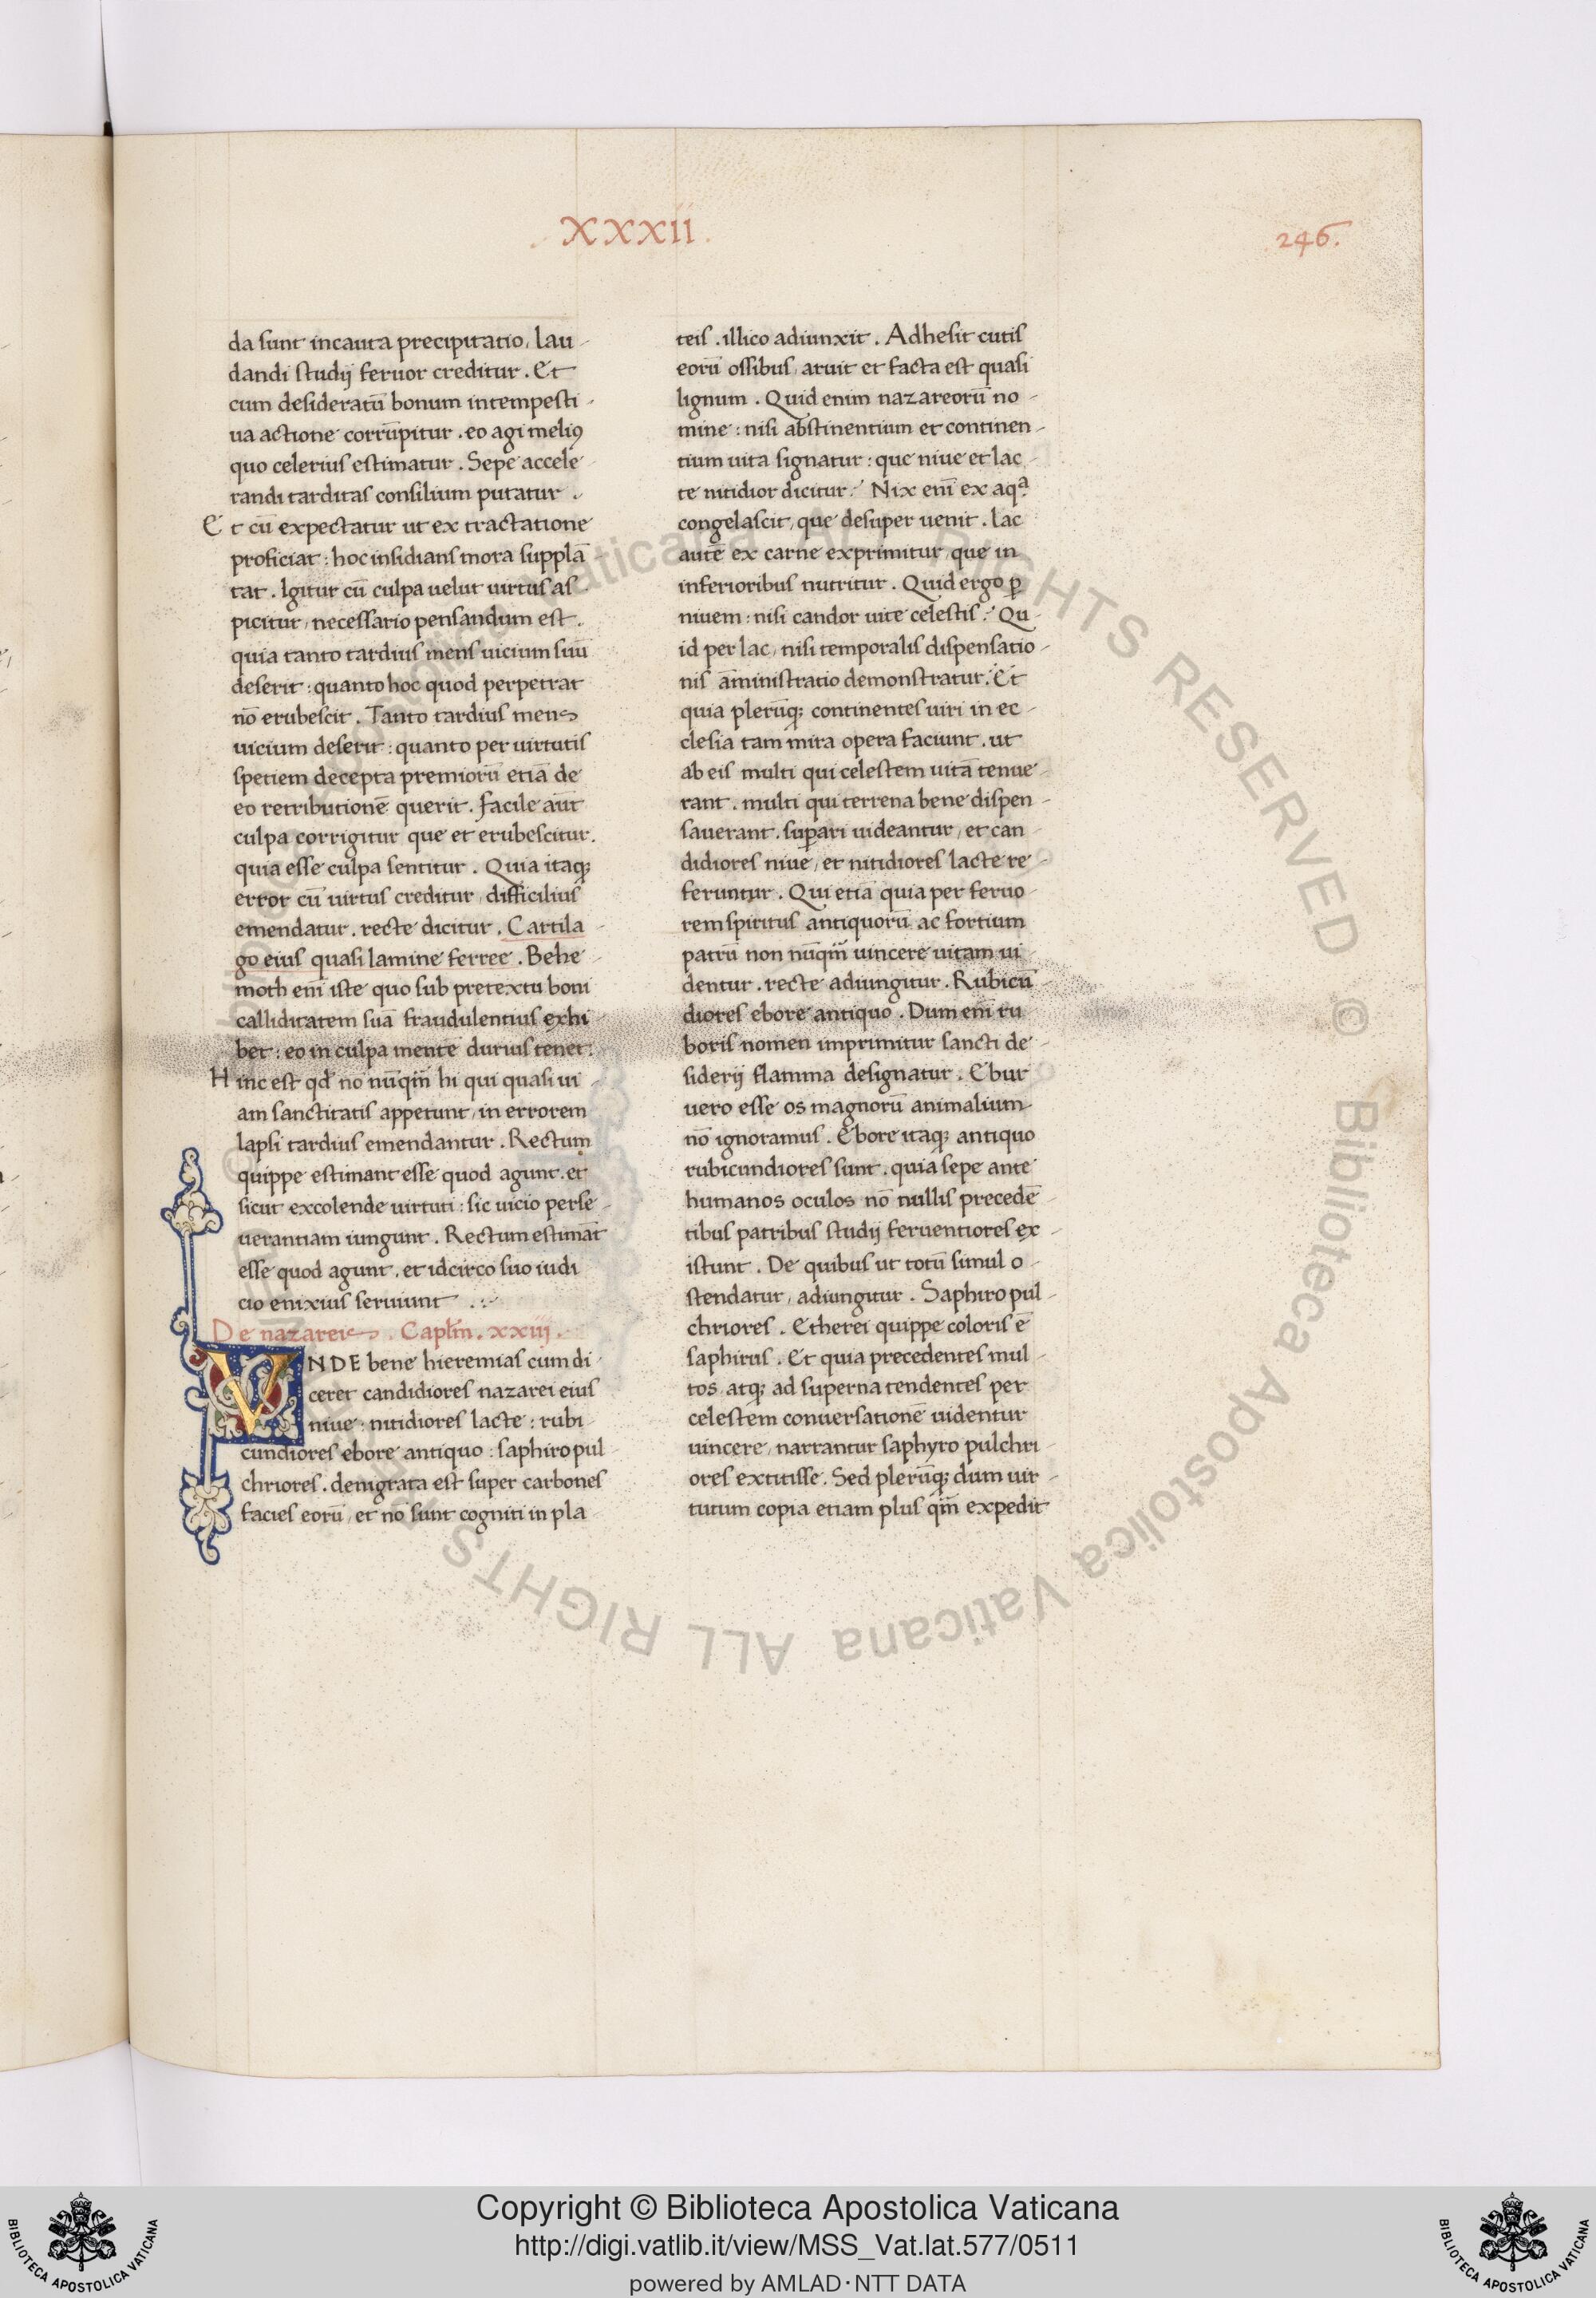 .XXXII.
246.
da sunt incauta precipitatio, lau-
dandi studij feruor creditur. Et
cum desideratū bonum intempesti-
ua actione corrūpitur. eo agi meliꝰ
quo celerius estimatur. Sepe accele-
randi tarditas consilium putatur.
Et cū expectatur ut ex tractatione
proficiat: hoc insidians mora supplā-
tat. Igitur cū culpa uelut uirtus as-
picitur, necessario pensandum est.
quia tanto tardius mens uicium suū
deserit: quanto hoc quod perpetrat
nō erubescit. Tanto tardius mens
uicium deserit: quanto per uirtutis
spetiem decepta premiorū etiā de
eo retributionē querit. facile aūt
culpa corrigitur que et erubescitur.
quia esse culpa sentitur. Quia itaqꝫ
error cū uirtus creditur, difficilius
emendatur. recte dicitur. Cartila-
go eius quasi lamine ferree. Behe-
moth eni̅ iste quo sub pretextu boni
calliditatem suā fraudulentius exhi-
bet: eo in culpa mente durius tenet.
Hinc est qd̄ nō nūqm̅ hi qui quasi ui-
am sanctitatis appetunt, in errorem
lapsi tardius emendantur. Rectum
quippe estimant esse quod agunt. et
sicut excolende uirtuti: sic uicio perse-
uerantiam iungunt. Rectum estimāt
esse quod agunt. et idcirco suo iudi
cio enixius seruiunt.
De nazareis. Capłm. xxiij.
VNDE bene hieremias cum di-
ceret candidiores nazarei eius
niue: nitidiores lacte: rubi-
cundiores ebore antiquo: saphiro pul-
chriores. denigrata est super carbones
facies eorū, et nō sunt cogniti in pla-
teis. illico adiunxit. Adhesit cutis
eorū ossibus, aruit et facta est quasi
lignum. Quid enim nazareorū no-
mine: nisi abstinentium et continen-
tium uita signatur: que niue et lac-
te nitidior dicitur: Nix eni̅ ex aqᵃ
congelascit, que desuper uenit. lac
autē ex carne exprimitur, que in
inferioribus nutritur. Quid ergo ꝑ
niuem: nisi candor uite celestis: Qu-
id per lac, nisi temporalis dispensatio-
nis āministratio demonstratur: Et
quia plerūqꝫ continentes uiri in ec-
clesia tam mira opera faciunt. ut
ab eis multi qui celestem uitā tenue-
rant. multi qui terrena bene dispen-
sauerant. suꝑari uideantur, et can-
didiores niue, et nitidiores lacte re-
feruntur. Qui etiā quia per feruo-
rem spiritus antiquorū ac fortium
patrū non nūqm̅ uincere uitam ui-
dentur. recte adiungitur. Rubicū-
diores ebore antiquo. Dum eni̅ ru-
boris nomen imprimitur sancti de-
siderij flamma designatur. Ebur
uero esse os magnorū animalium
nō ignoramus. Ebore itaqꝫ antiquo
rubicundiores sunt. quia sepe ante
humanos oculos nō nullis precedē-
tibus patribus studij feruentiores ex-
istunt. De quibus ut totū simul o-
stendatur, adiungitur. Saphiro pul-
chriores. Etherei quippe coloris ē
saphirus. Et quia precedentes mul-
tos, atqꝫ ad superna tendentes per
celestem conuersationē uidentur
uincere, narrantur saphyro pulchri-
ores extitisse. Sed plerūqꝫ dum uir-
tutum copia etiam plus qm̅ expedit
© Biblioteca Apostolica Vaticana ALL RIGHTS RESERVED
Copyright © Biblioteca Apostolica Vaticana
http://digi.vatlib.it/view/MSS_Vat.lat.577/0511
powered by AMLAD·NTT DATA
BIBLIOTECA APOSTOLICA VATICANA
BIBLIOTECA APOSTOLICA VATICANA